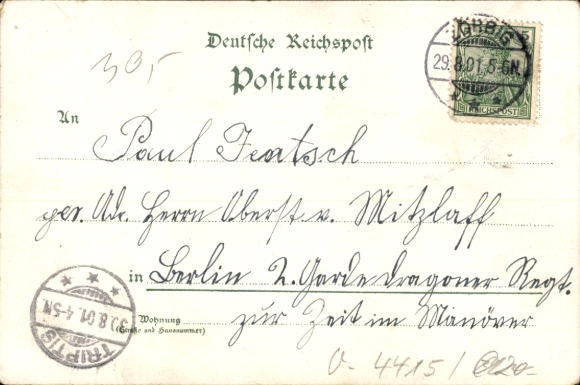 Deutsche Reichspost
Postkarte
5
29.8.01.5-6N.
REICHSPOST
305
An
Paul
per. Adr. Herrn Oberst v. Mitzlaff
in Berlin 2. Garde dragoner Regt.
Wohnung
(Straße und Hausnummer)
zur Zeit im Manöver
TRIPTIS
30.8.01.4-5N
4415/